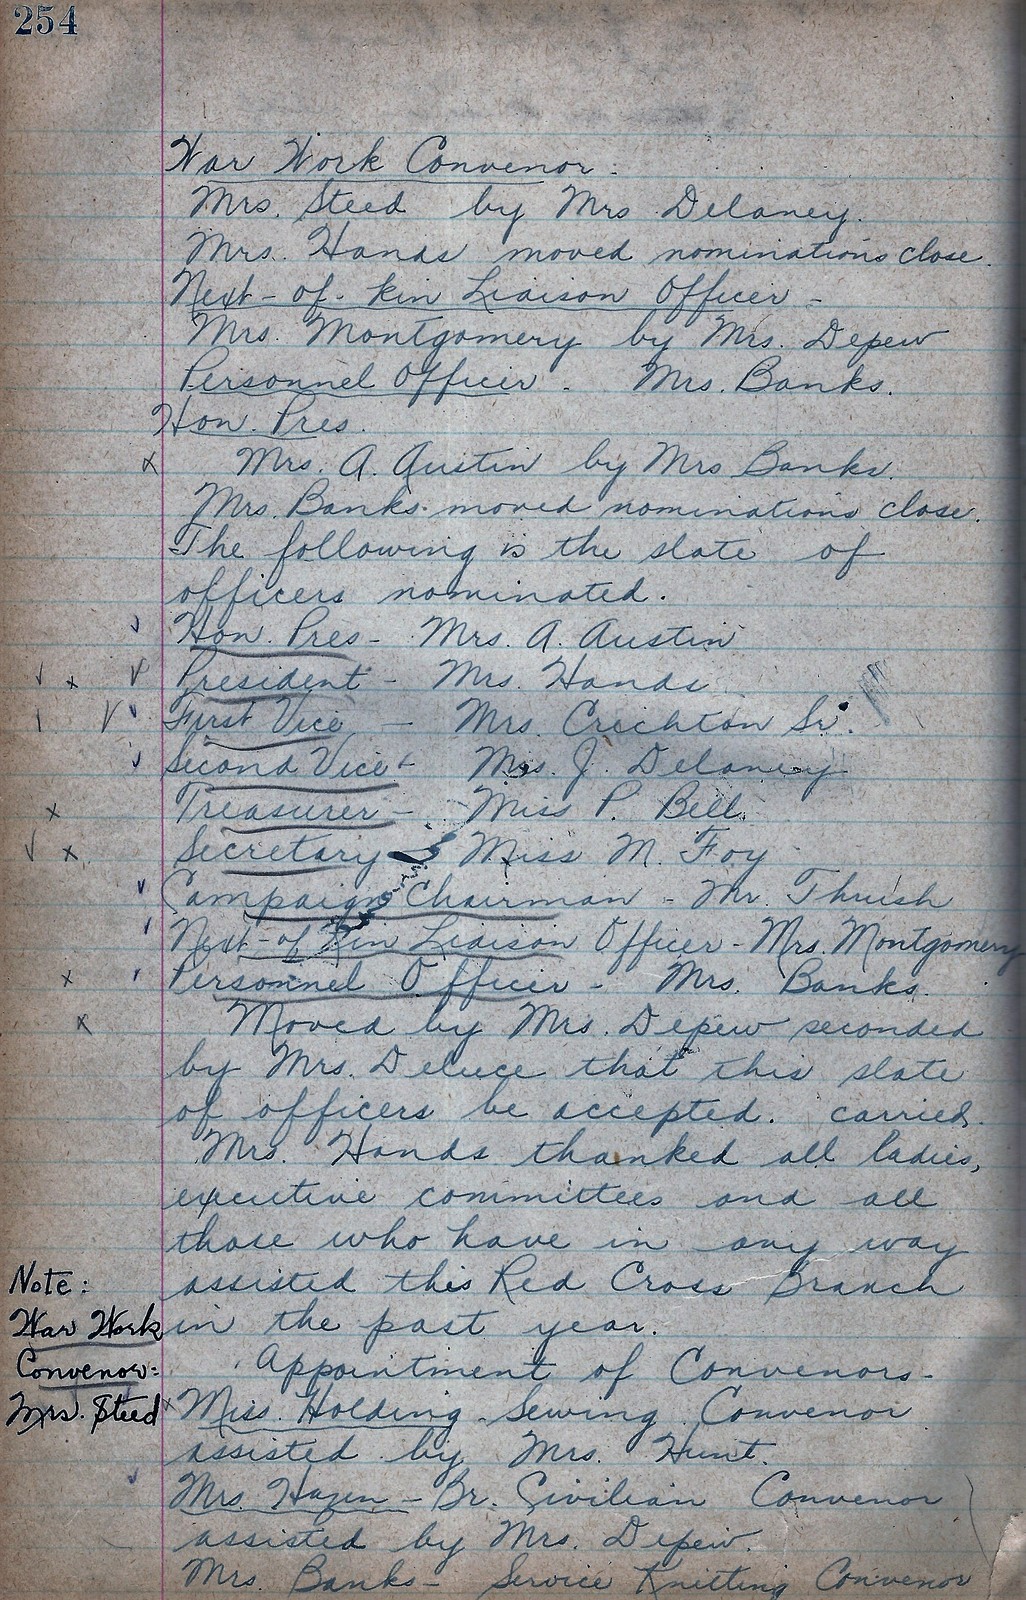 254
War Work Convenor:
Mrs. Steed by Mrs Delaney.
Mrs. Hands moved nominations close.
Next-of-kin Liaison Officer -
Mrs. Montgomery by Mrs. Depew
Personnel Officer - Mrs. Banks.
Hon. Pres.
x Mrs. A. Austin by Mrs Banks.
Mrs. Banks moved nominations close.
The following is the slate of
officers nominated.
Hon. Pres - Mrs. A. Austin
President - Mrs. Hands
First Vice - Mrs. Crichton Sr.
Second Vice - Mrs. J. Delaney
Treasurer - Miss P. Bell
Secretary - Miss M. Foy
Campaign Chairman - Mr. Thrush
Next-of Kin Liaison Officer - Mrs. Montgomery
Personnel Officer - Mrs. Banks.
Moved by Mrs. Depew seconded
by Mrs. Deluce that this slate
of officers be accepted. carried.
Mrs. Hands thanked all ladies,
executive committees and all
those who have in any way
assisted this Red Cross Branch
in the past year.
Note:
War Work
Convenor:
Mrs. Steed
Appointment of Convenors-
Miss. Holding - Sewing Convenor
assisted by Mrs. Hunt.
Mrs. Hazen - Br. Civilian Convenor
assisted by Mrs. Depew.
Mrs. Banks - Service Knitting Convenor